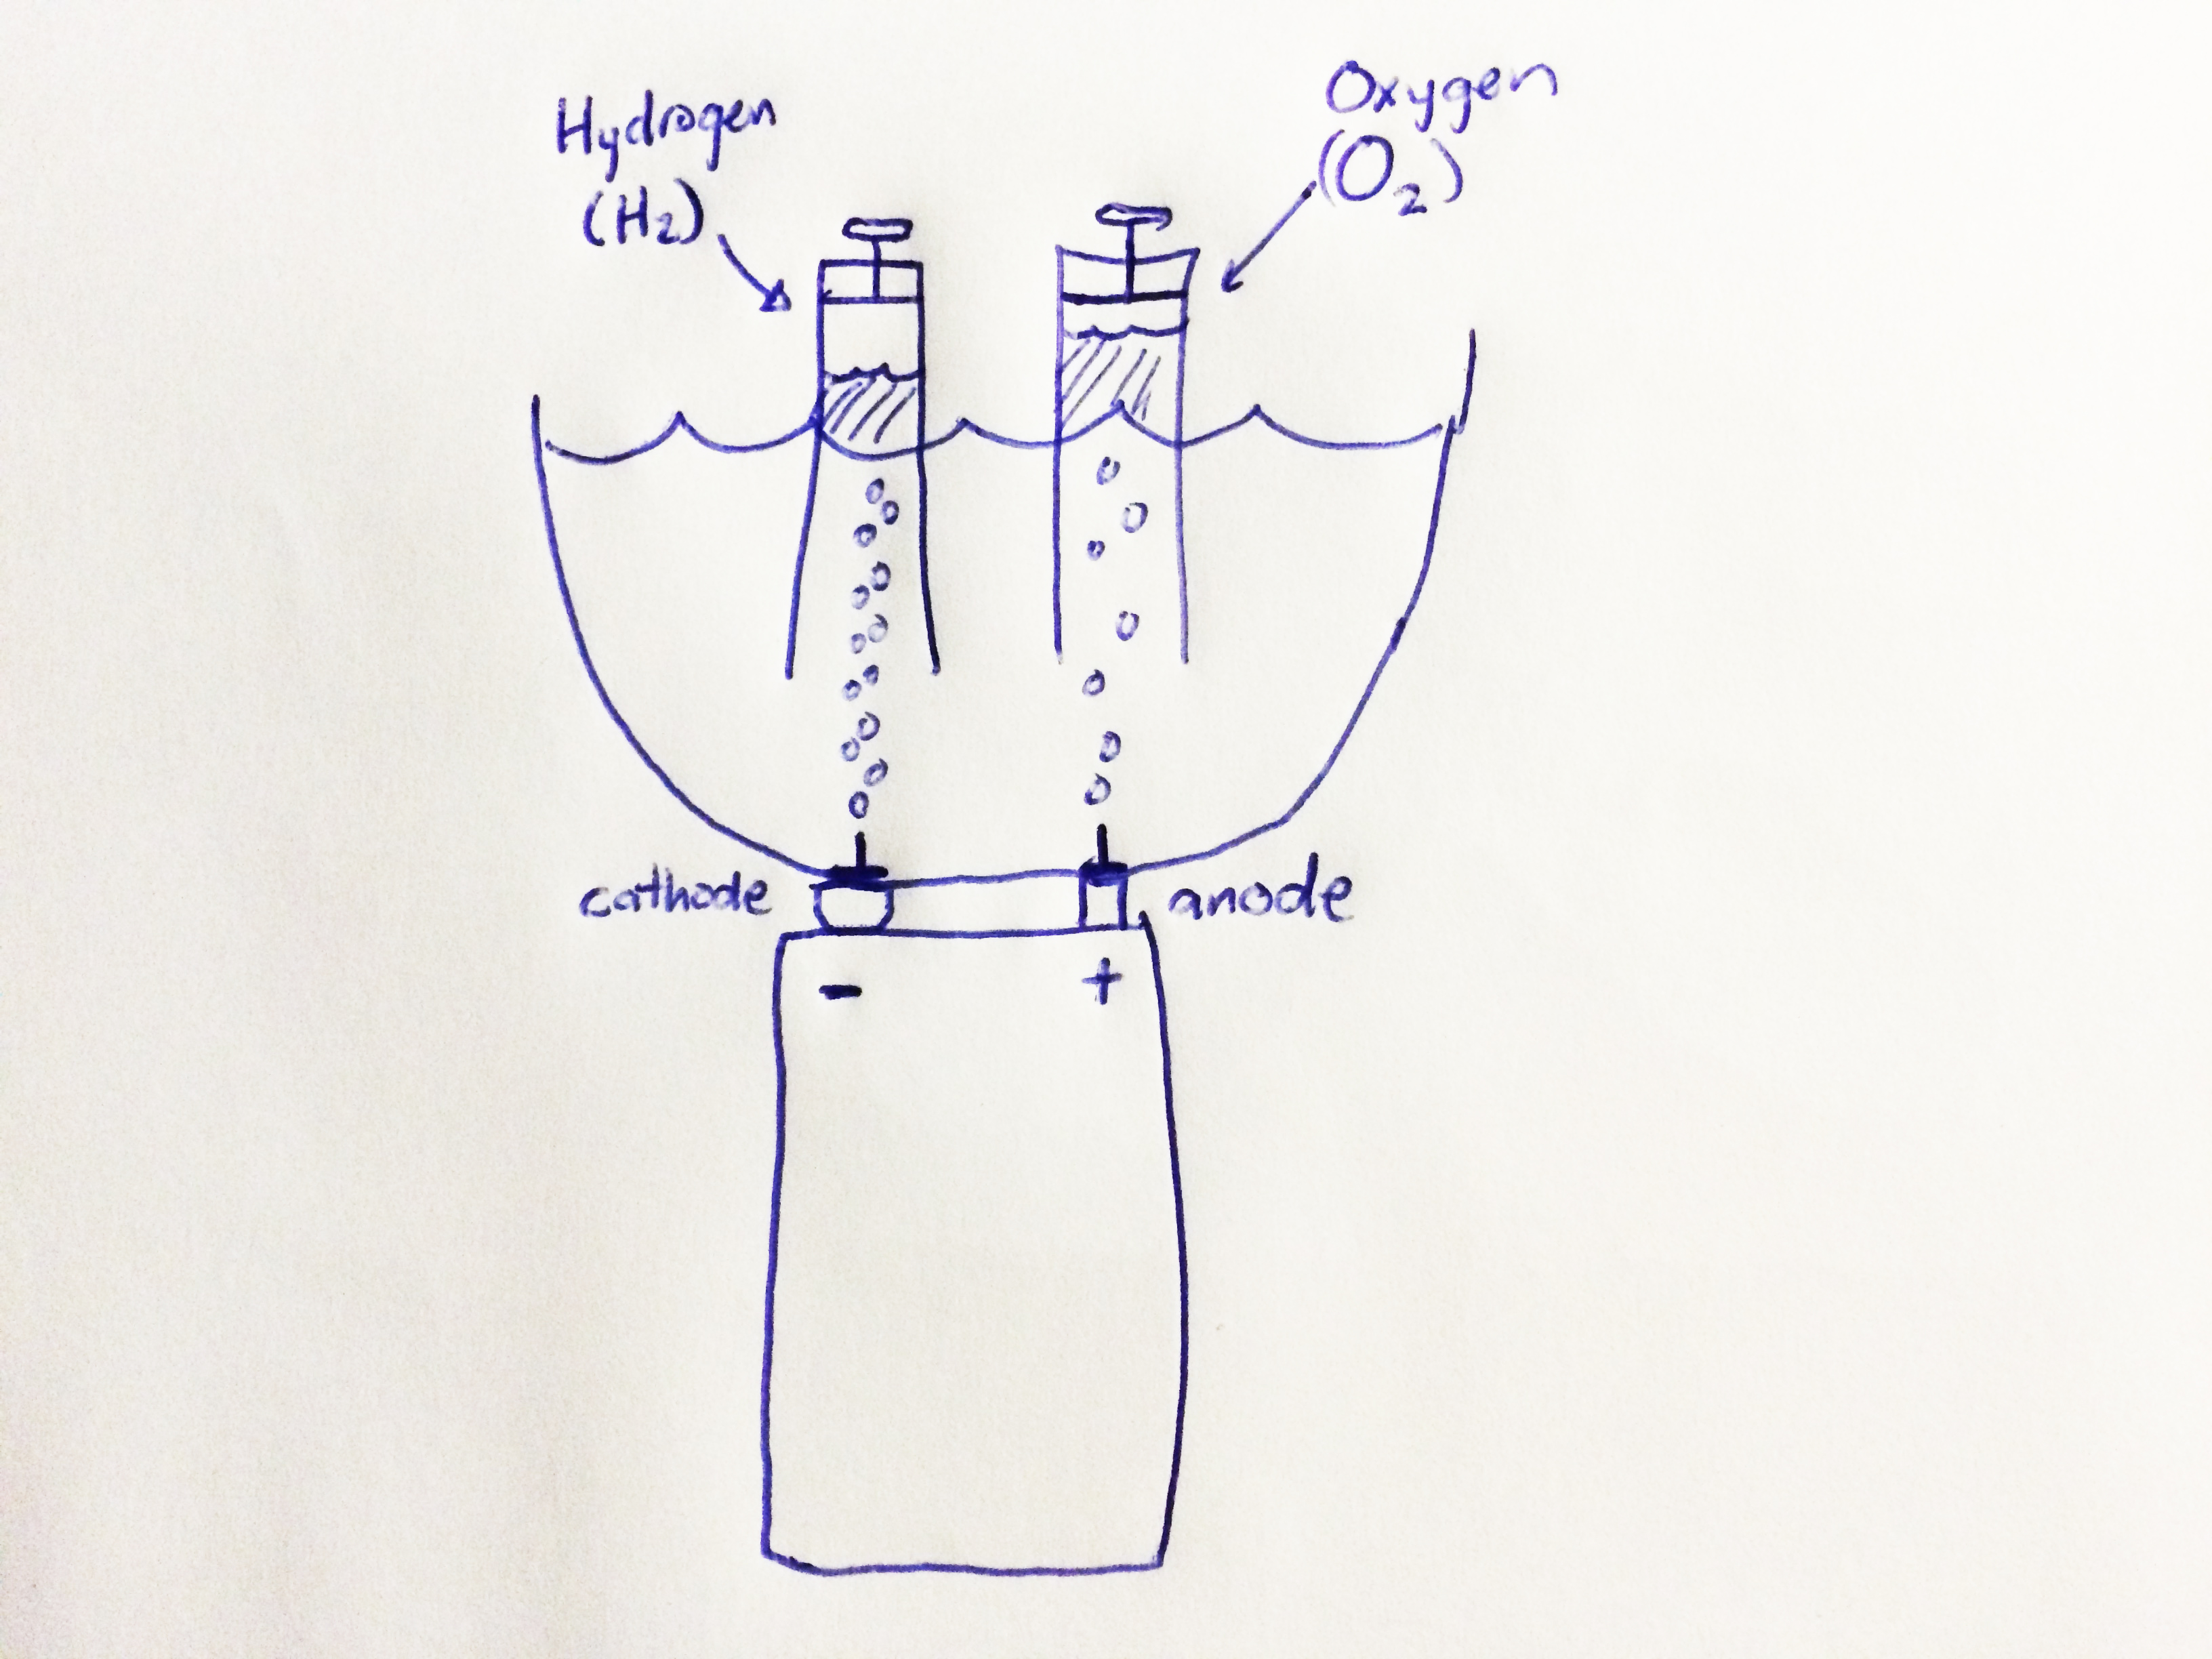 Hydrogen
(H2)
Oxygen
(O2)
cathode
anode
-
+